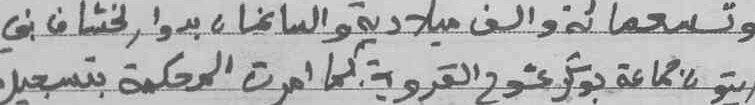 وتسعمائة والف ميلادية والساعات بدوار لخشاف بني
جماعة بوكرعتوح القروية. كما امرت المحكمة بتسجيل